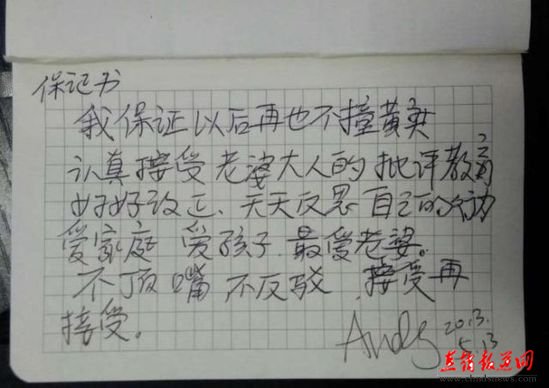 保证书
我保证以后再也不撞黄灯
认真接受老婆大人的批评教育
好好改正、天天反思自己的
爱家庭 爱孩子 最爱老婆。
不顶嘴 不反驳 接受再
接受。
Andy 2013.
5.13
www.chndsnews.com